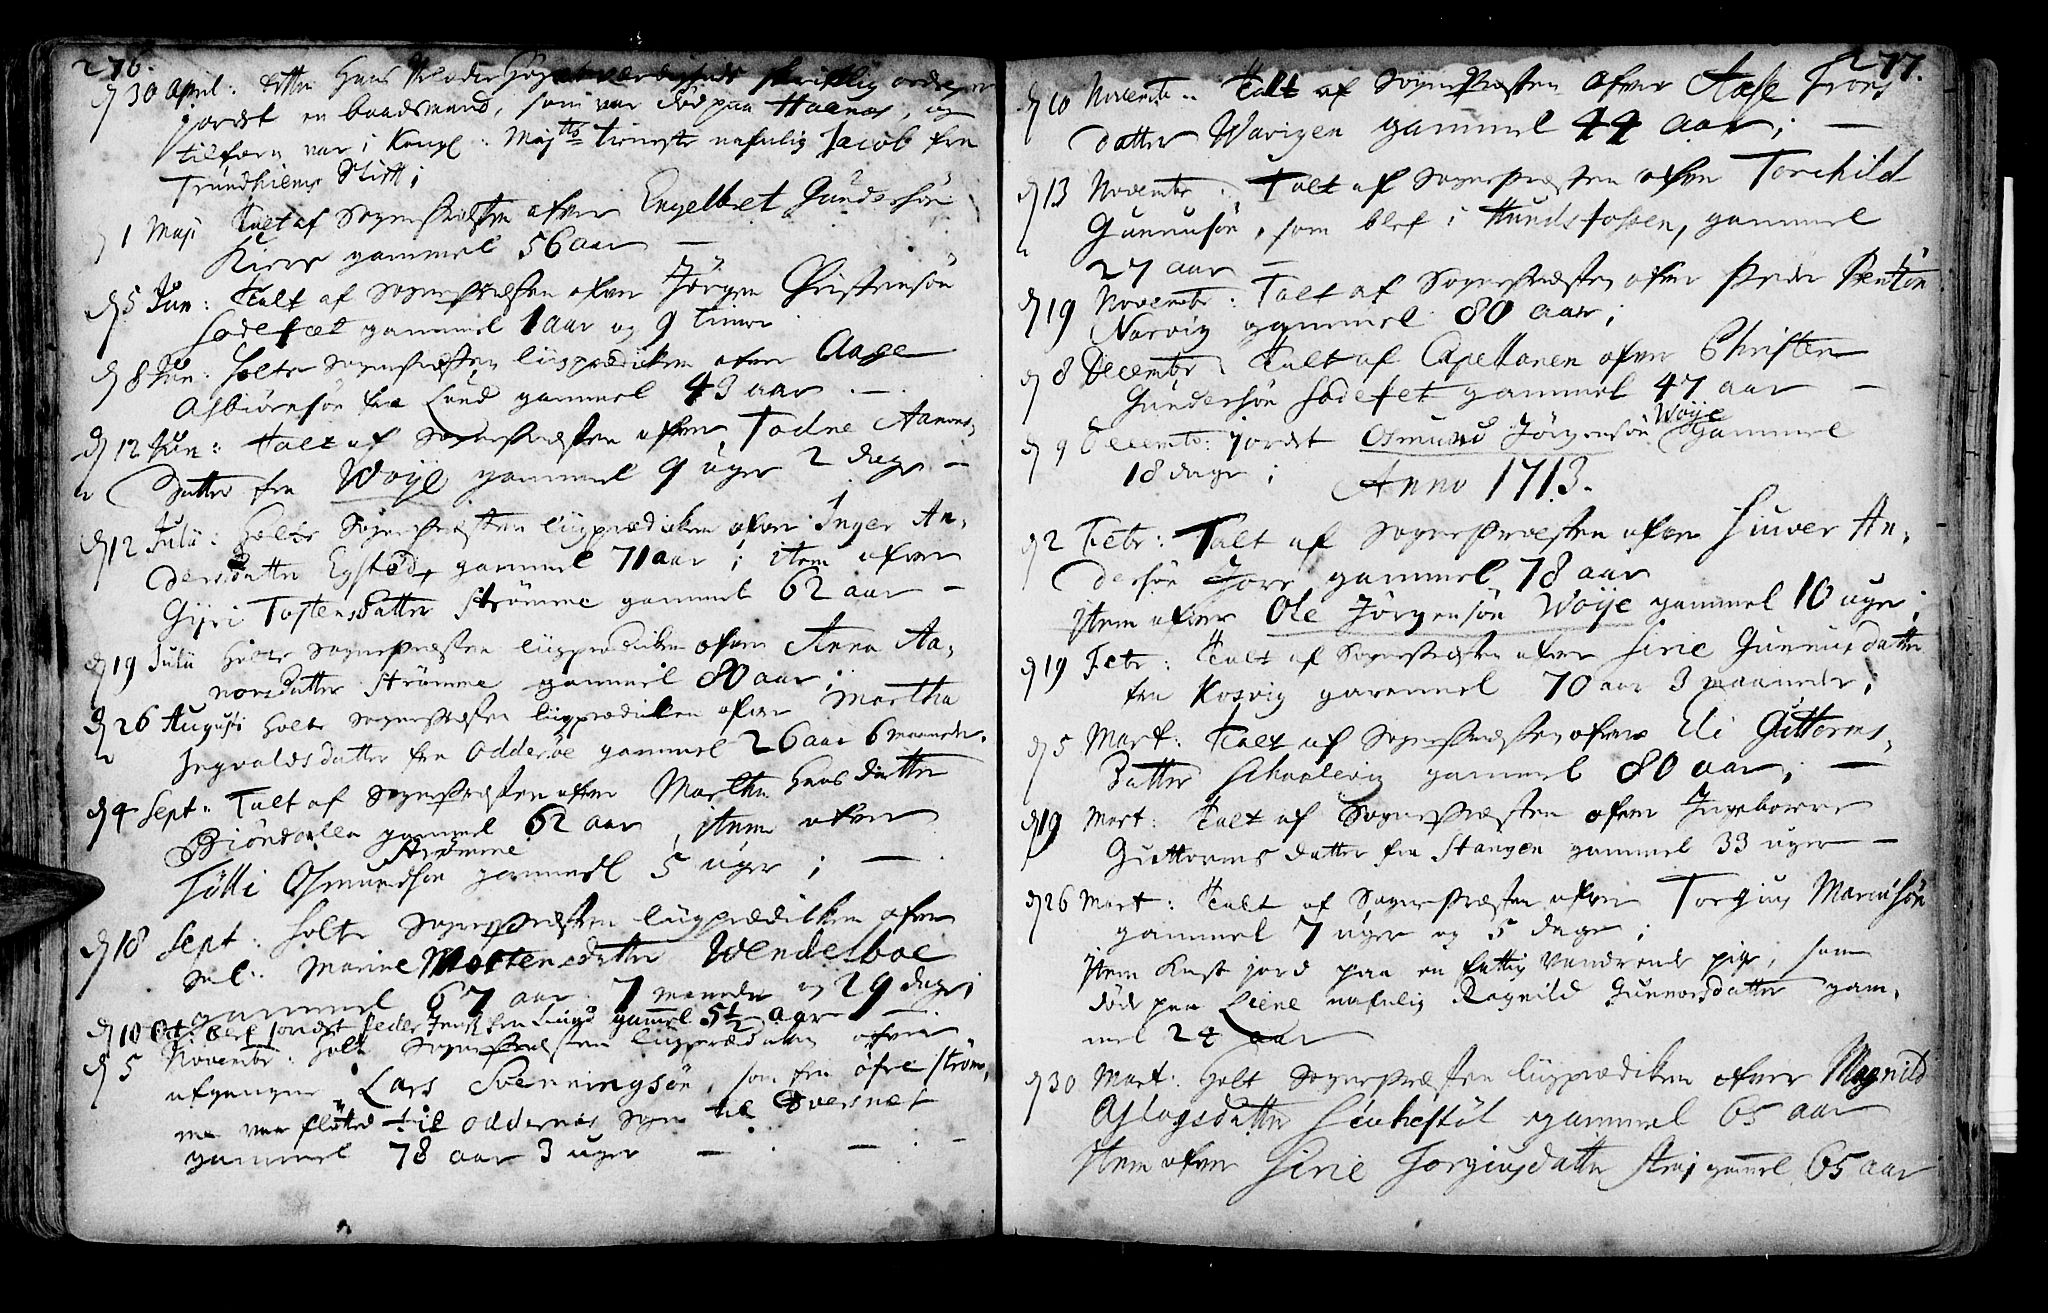 276.
d 30 April: efter Hans Høyærværdigheds skriftlig ordre er
jordet en baadsmand, som var død paa Haanes, og
tilforn var i Kongl: Majtts tieneste nafnlig Jacob fra
Trundhiems Stift;
d 1 Maji Talt af Sognepræsten ofver Engelbret Gundersøn
Kiere gammel 56 aar —
d 5 Jun: Talt af Sognepræsten ofver Jørgen Christensøn
Sodefæt gammel 1 aar og 9 timer
d 8 Jun: holte Sognepræsten liigprædicken ofver Aage
Asbiørnsøn fra Lund gammel 43 aar. —
d 12 Jun: Talt af Sognepræsten ofver Todne Aanons-
datter fra Woije gammel 9 uger 2 dage —
d 12 Julii: Holte Sognepræsten liigprædicken ofver Inger An-
dersdatter Egsted, gammel 71 aar; item ofver
Gyri Tostensdatter Strømme gammel 62 aar —
d 19 Julii holte Sognepræsten liigprædicken ofver Anna Aa-
nonsdatter Strømme gammel 80 aar;
d 26 Augusti holte Sognepræsten liigprædicken ofver Martha
Ingvaldsdatter fra Odderøe gammel 26 aar 6 maaneder.
d 4 Sept: Talt af Sognepræsten ofver Martha Hansdatter
Biøndalen gammel 62 aar, item ofver
Strømme
Tølli Osmundsøn gammel 5 uger; —
d 18 Sept: holte Sognepræsten liigprædicken ofver
Sal: Marine Mortensdatter Wendelboe
gammel 67 aar 7 maaneder og 29 dage;
d 10 Oct: blef jordet Peder fra Lund gammel 5½ aar —
d 5 Novembr: holt Sognepræsten liigprædicken ofver
afgangne Lars Svenningsøn, som fra øfre Strøm-
me var fløtted til Oddernes Sogn til
gammel 78 aar 3 uger — . — . —
277.
d 10 Novembr: Talt af Sognepræsten ofver Aase Trons
datter Warigen gammel 44 aar; —
d 13 Novembr: Talt af Sognepræsten ofver Torchild
Gunnusøn, som blef i Hundsfossen, gammel
27 aar —
d 19 Novembr: Talt af Sognepræsten ofver Peder Bentsøn
Narvig gammel 80 aar;
d 8 Decembr Talt af Capellanen ofver Christen
Gundersøn Sodefet gammel 47 aar —
Woije
d 9 Decembr: jordet Osmund Jørgensøn gammel
18 dage;
Anno 1713.
d 2 Febr: Talt af Sognepræsten ofver Siuver An-
dersøn Jore gammel 78 aar
Item ofver Ole Jørgensøn Woije gammel 10 uger;
d 19 Febr: Talt af Sognepræsten ofver Sirie Gunnusdatter
fra Kosvig gammel 70 aar 3 maaneder;
d 5 Mart: Talt af Sognepræsten ofver Eli Guttorms-
datter gammel 80 aar; —
d 19 Mart: Talt af Sognepræsten ofver Ingeborre
Guttormsdatter fra Stangen gammel 33 uger —
d 26 Mart: Talt af Sognepræsten ofver Torgius Mariusøn
gammel 7 uger og 5 dage;
Item kast jord paa en fattig vandrende pige, som
døde paa Liene nafnlig Ragnild Gunnarsdatter gam-
mel 24 aar
d 30 Mart: Holt Sognepræsten liigprædicken ofver Magnild
Aslagsdatter gammel 65 aar
Item ofver Sirie Torgiusdatter Strai gammel 65 aar